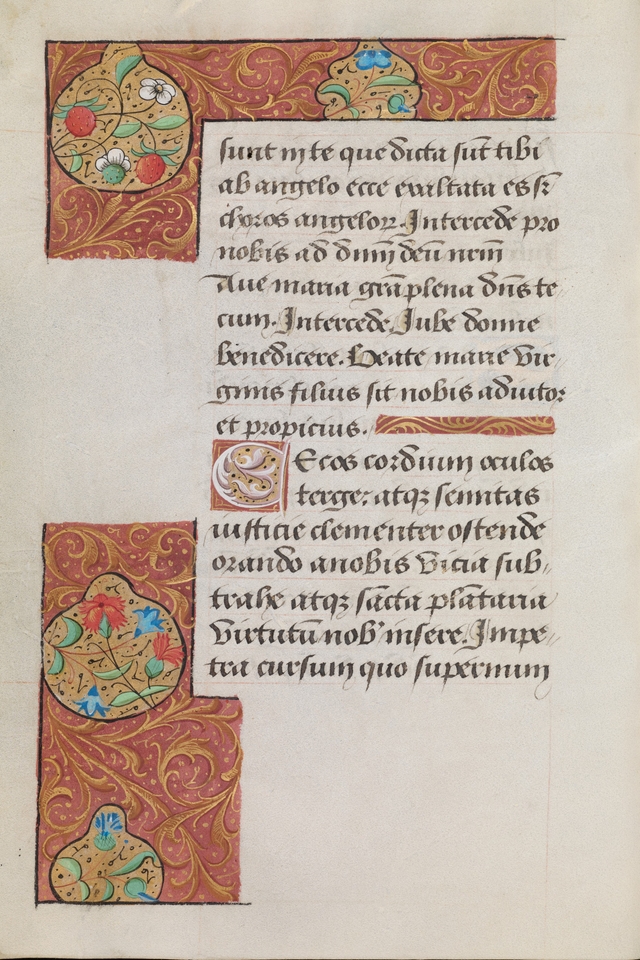 sunt in te que dicta sũt tibi
ab angelo ecce exaltata es sr̄
choros angeloꝝ. Intercede pro
nobis ad dñm̄ deũ nr̄m
Aue maria grã plena dñs te
cum. Intercede. Iube domne
benedicere. Beate marie vir
ginis filius sit nobis adiutor
et propicius.
Cecos cordium oculos
terge: atqꝫ semitas
iusticie clementer ostende
orando a nobis vicia sub,
trahe atqꝫ sãcta plãtaria
virtutũ nob' insere. Impe
tra cursum quo supernum